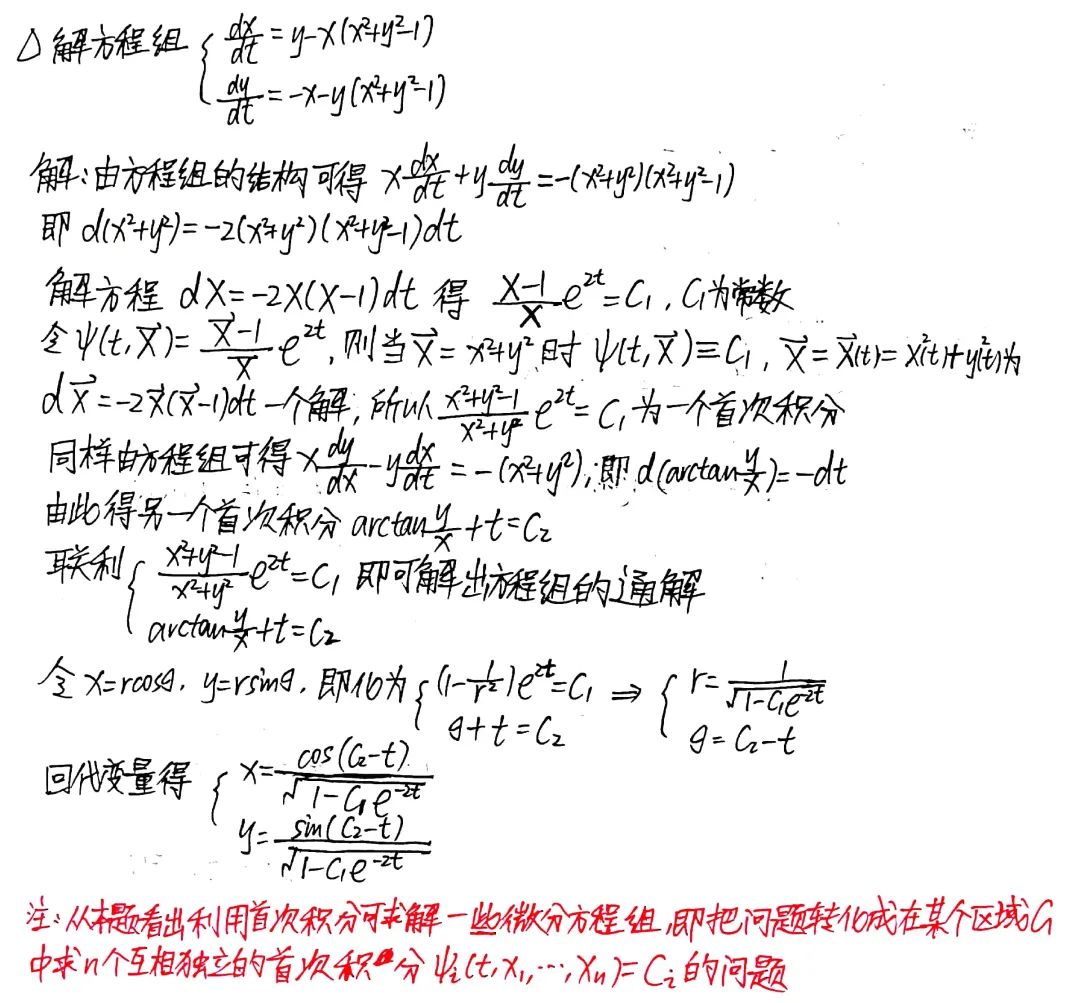 △解方程组 { dx/dt = y-x(x²+y²-1)
dy/dt = -x-y(x²+y²-1)
解:由方程组的结构可得 x dx/dt + y dy/dt = -(x²+y²)(x²+y²-1)
即 d(x²+y²) = -2(x²+y²)(x²+y²-1)dt
解方程 dX = -2X(X-1)dt 得 (X-1)/X e^{2t} = C₁, C₁为常数
令 ψ(t,X⃗) = (X⃗-1)/X⃗ e^{2t}, 则当 X⃗ = x²+y² 时 ψ(t,X⃗) ≡ C₁, X⃗ = X⃗(t) = x²(t)+y²(t)为
dX⃗ = -2X⃗(X⃗-1)dt 一个解, 所以 (x²+y²-1)/(x²+y²) e^{2t} = C₁ 为一个首次积分
同样由方程组可得 x dy/dx - y dx/dt = -(x²+y²), 即 d(arctan y/x) = -dt
由此得另一个首次积分 arctan y/x + t = C₂
联利 { (x²+y²-1)/(x²+y²) e^{2t} = C₁ 即可解出方程组的通解
arctan y/x + t = C₂
令 x=rcosθ, y=rsinθ, 即化为 { (1-1/r²)e^{2t} = C₁ ⇒ { r = 1/√(1-C₁e^{-2t})
θ+t = C₂ θ = C₂-t
回代变量得 { x = cos(C₂-t)/√(1-C₁e^{-2t})
y = sin(C₂-t)/√(1-C₁e^{-2t})
注:从本题看出利用首次积分可求解一些微分方程组,即把问题转化成在某个区域G
中求n个互相独立的首次积分 ψᵢ(t,x₁,…,xₙ) = Cᵢ 的问题